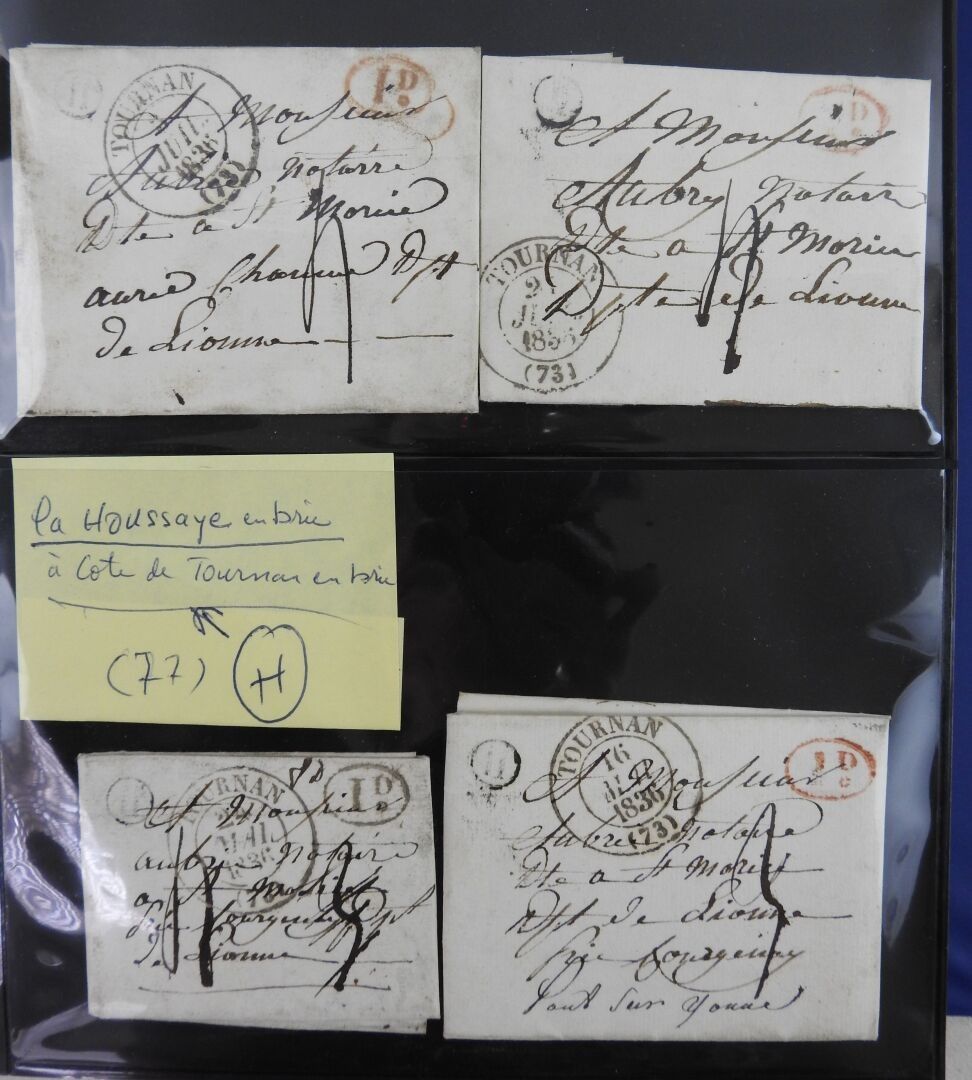 TOURNAN
JUIL
1836
(73)
1D
A Monsieur
Aubry notaire
Dte a St Morice
aurie Chaumes Dpt
de Lionne
H
TOURNAN
(73)
D
A Monsieur
Aubry notaire
Dte a St Morice
Dpte de Lionne
la Houssaye en brie
à Coté de Tournan en brie
(77) H
MAI
1836
1D
A Monsieur
aubry notaire
de Lionne
H
TOURNAN
16
1836
(73)
1D
c
A Monsieur
Aubry notaire
Dte a St Morice
Dpt de Lionne
Pont Sur Yonne